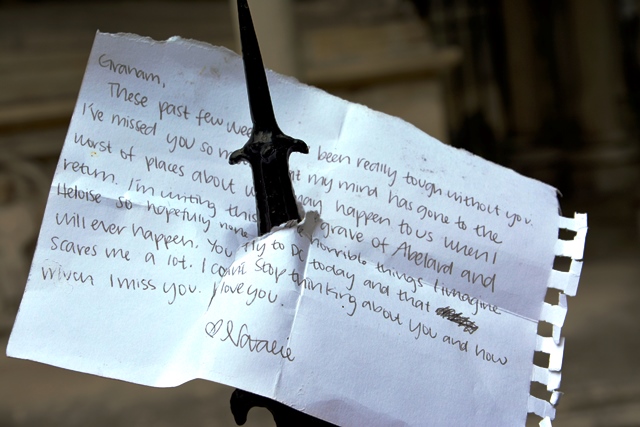 Graham,
These past few been really tough without you.
I've missed you so my mind has gone to the
worst of places about may happen to us when I
return. I'm writing this grave of Abelard and
Heloise so hopefully none horrible things I imagine
will ever happen. You fly to DC today and that
scares me a lot. I can't stop thinking about you and how
much I miss you. I love you.
♡ Natalie